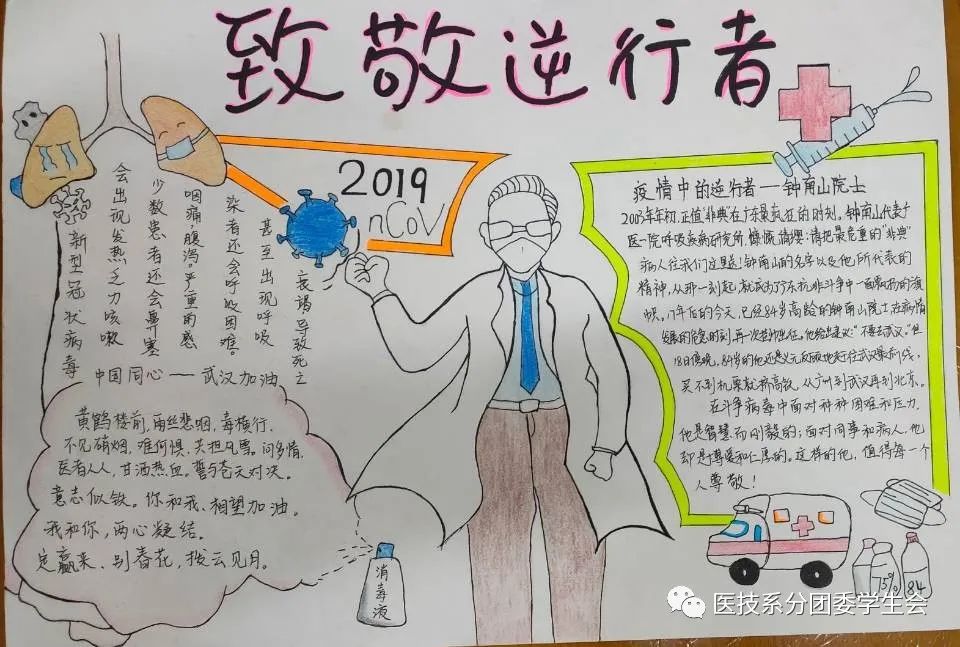 致敬逆行者
2019
nCoV
新型冠状病毒
会出现发热乏力咳嗽
少数患者还会鼻塞
咽痛,腹泻。严重的感
染者还会呼吸困难。
甚至出现呼吸
衰竭导致死亡
中国同心——武汉加油
黄鹤楼前,雨丝悲咽,毒横行.
不见硝烟,难何惧,共担风票,问多情,
医者人人,甘洒热血,誓与苍天对决。
意志似铁。你和我、相望加油。
我和你,两心凝结。
定赢来、别春花,拨云见月。
疫情中的逆行者——钟南山院士
2003年年初,正值"非典"在广东最疯狂的时刻,钟南山代表广
医一院呼吸疾病研究所,慷慨请缨:请把最危重的"非典"
病人往我们这里送!钟南山的名字以及他所代表的
精神,从那一刻起,就成为了广东抗非斗争中一面飘扬的旗
帜,17年后的今天,已经84岁高龄的钟南山院士,在疫情
的危急时刻,再一次挂帅出征。他给出建议:"不要去武汉。"但
18日傍晚,84岁的他还是义无反顾地行往武汉最前线。
买不到机票就搭高铁,从广州到武汉再到北京。
在斗争病毒中面对种种困难和压力,
他是智慧而刚毅的;面对同事和病人,他
却是博爱和仁厚的。这样的他,值得每一个
人尊敬!
消毒液
75%
84
医技系分团委学生会